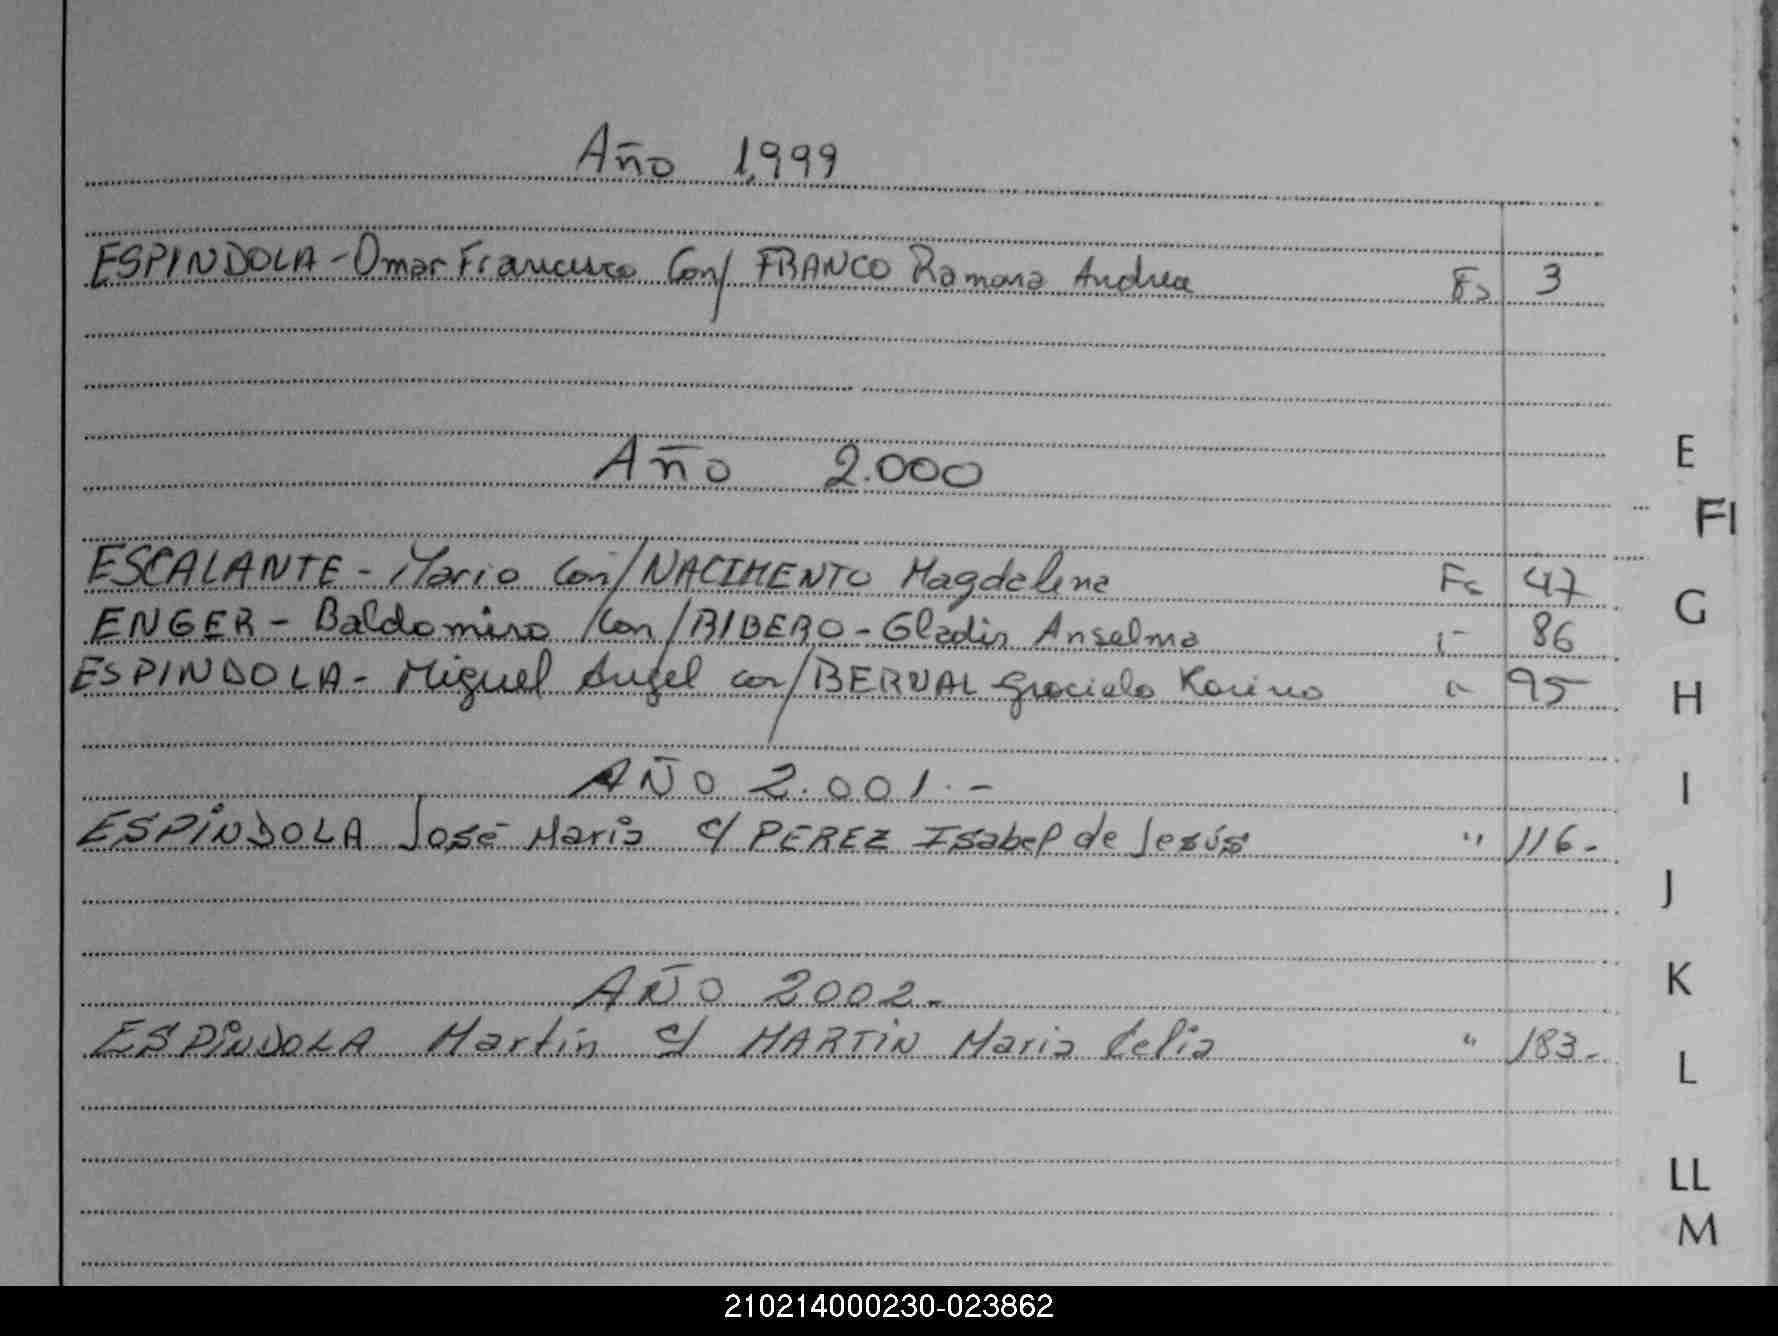 Año 1.999
ESPINDOLA - Omar Francisco Con/ FRANCO Ramona Andrea Fs 3
Año 2.000
ESCALANTE - Mario Con/ NACIMENTO Magdalena Fs 47
ENGER - Baldomiro Con/ RIBERO - Gladis Anselma 86
ESPINDOLA - Miguel Angel con/ BERNAL Graciela Karina " 95
AÑO 2.001.-
ESPINDOLA José Maria c/ PEREZ Isabel de Jesús " 116.-
AÑO 2002.-
ESPINDOLA Martin c/ MARTIN Maria Celia " 183.-
E
FI
G
H
I
J
K
L
LL
M
210214000230-023862